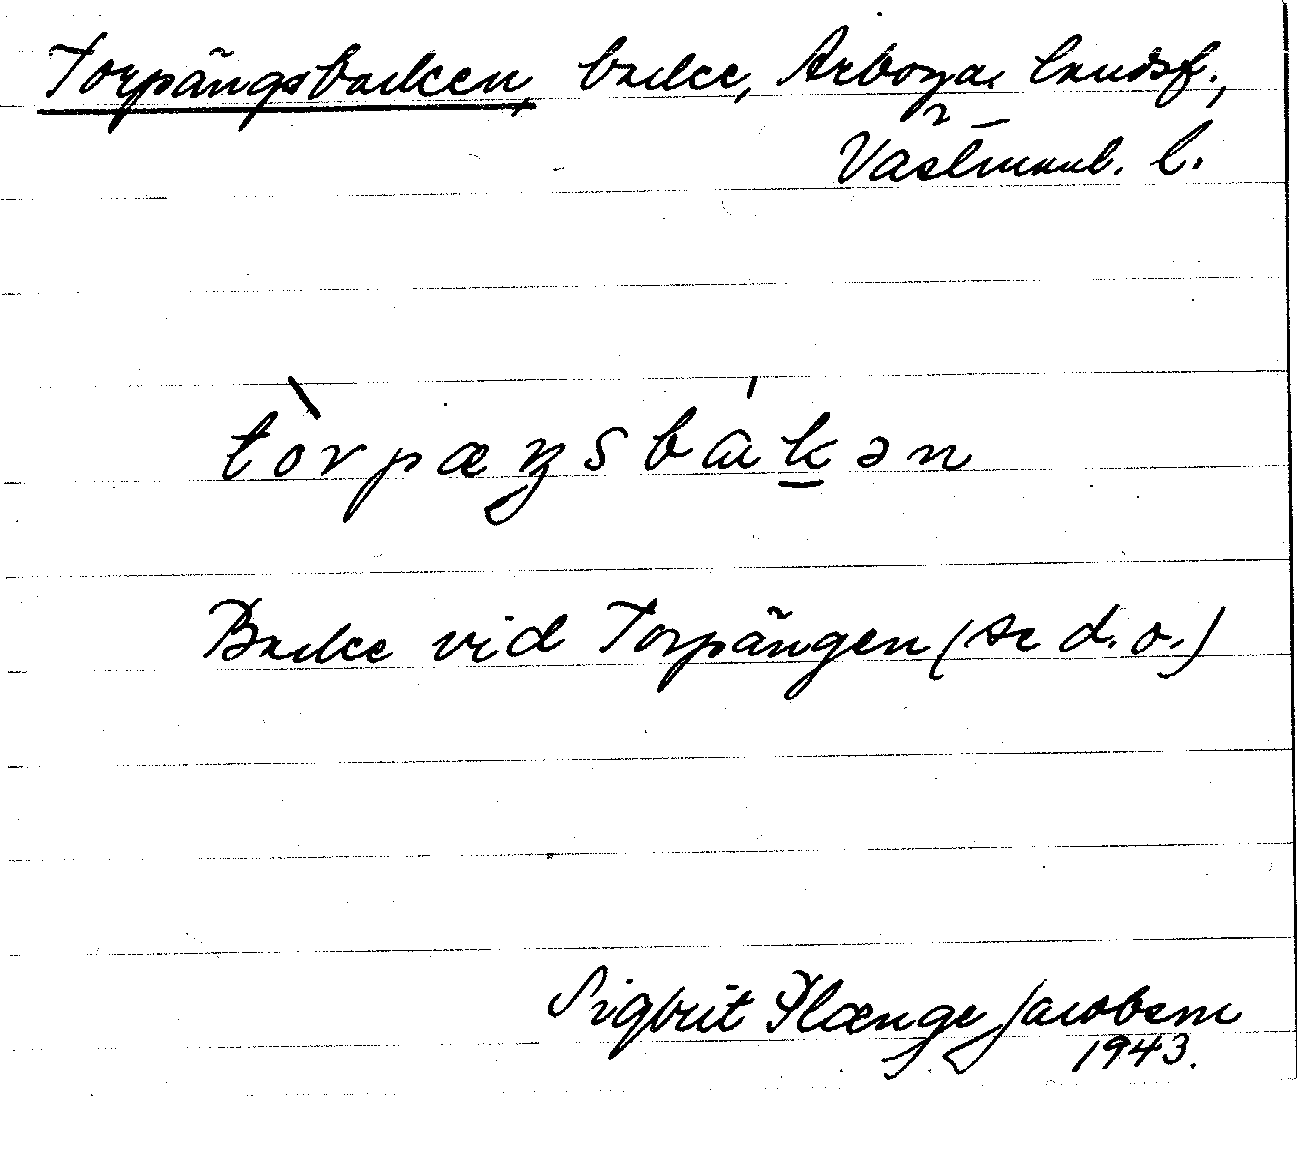 Torpängsbacken, backe, Arboga landsf.,
Västmanl. l.
tòrpæŋsbák̠ən
Backe vid Torpängen (se d.o.)
Sigbrit Plænge Jacobson
1943.